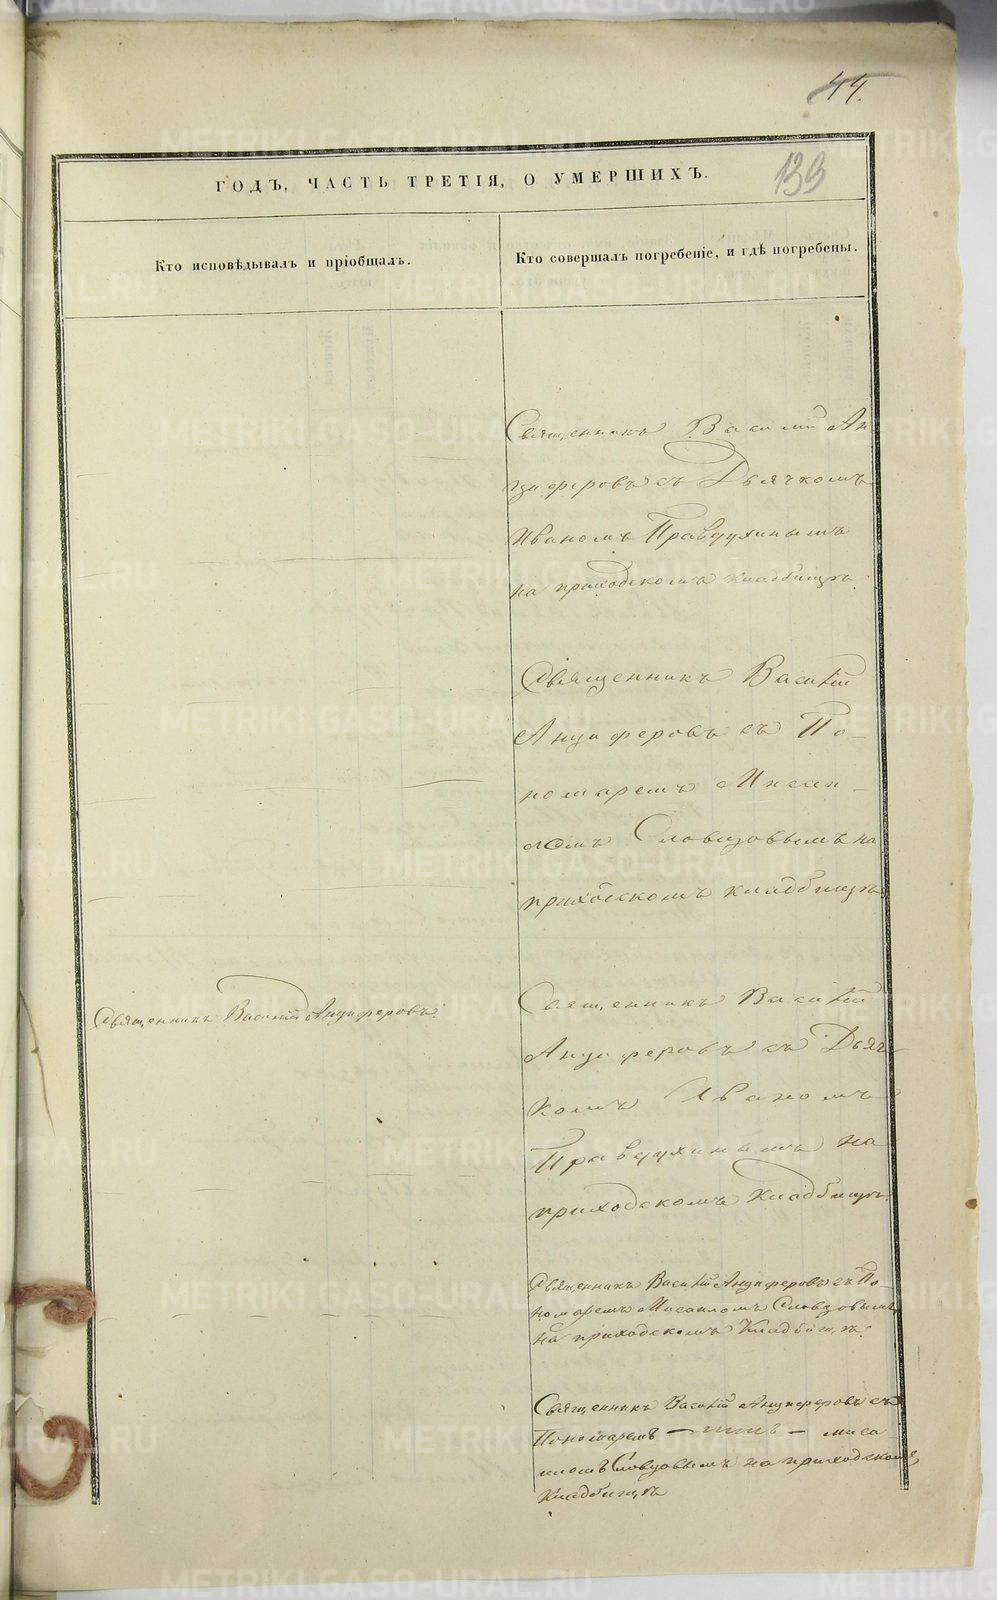 44.
139
ГОДЪ, ЧАСТЬ ТРЕТІЯ, О УМЕРШИХЪ.
Кто исповѣдывалъ и пріобщалъ.
Кто совершалъ погребеніе, и гдѣ погребены.
Священникъ Василій Ан
циферовъ съ Дьячкомъ
Иваномъ Правдухинымъ
на приходскомъ кладбищѣ.
Священникъ Василій
Анциферовъ съ По-
номаремъ Мисаи-
ломъ Словцовымъ на
приходскомъ кладбищѣ
Священникъ Василій Анциферовъ.
Священникъ Василій
Анциферовъ съ Дьяч-
комъ Иваномъ
Правдухинымъ на
приходскомъ кладбищѣ.
Священникъ Василій Анциферовъ съ По-
номаремъ Мисаиломъ Словцовымъ
на приходскомъ Кладбищѣ.
Священникъ Василій Анциферовъ съ
Пономаремъ Миса
иломъ Словцовымъ на приходскомъ
Кладбищѣ
METRIKI.GASO-URAL.RU